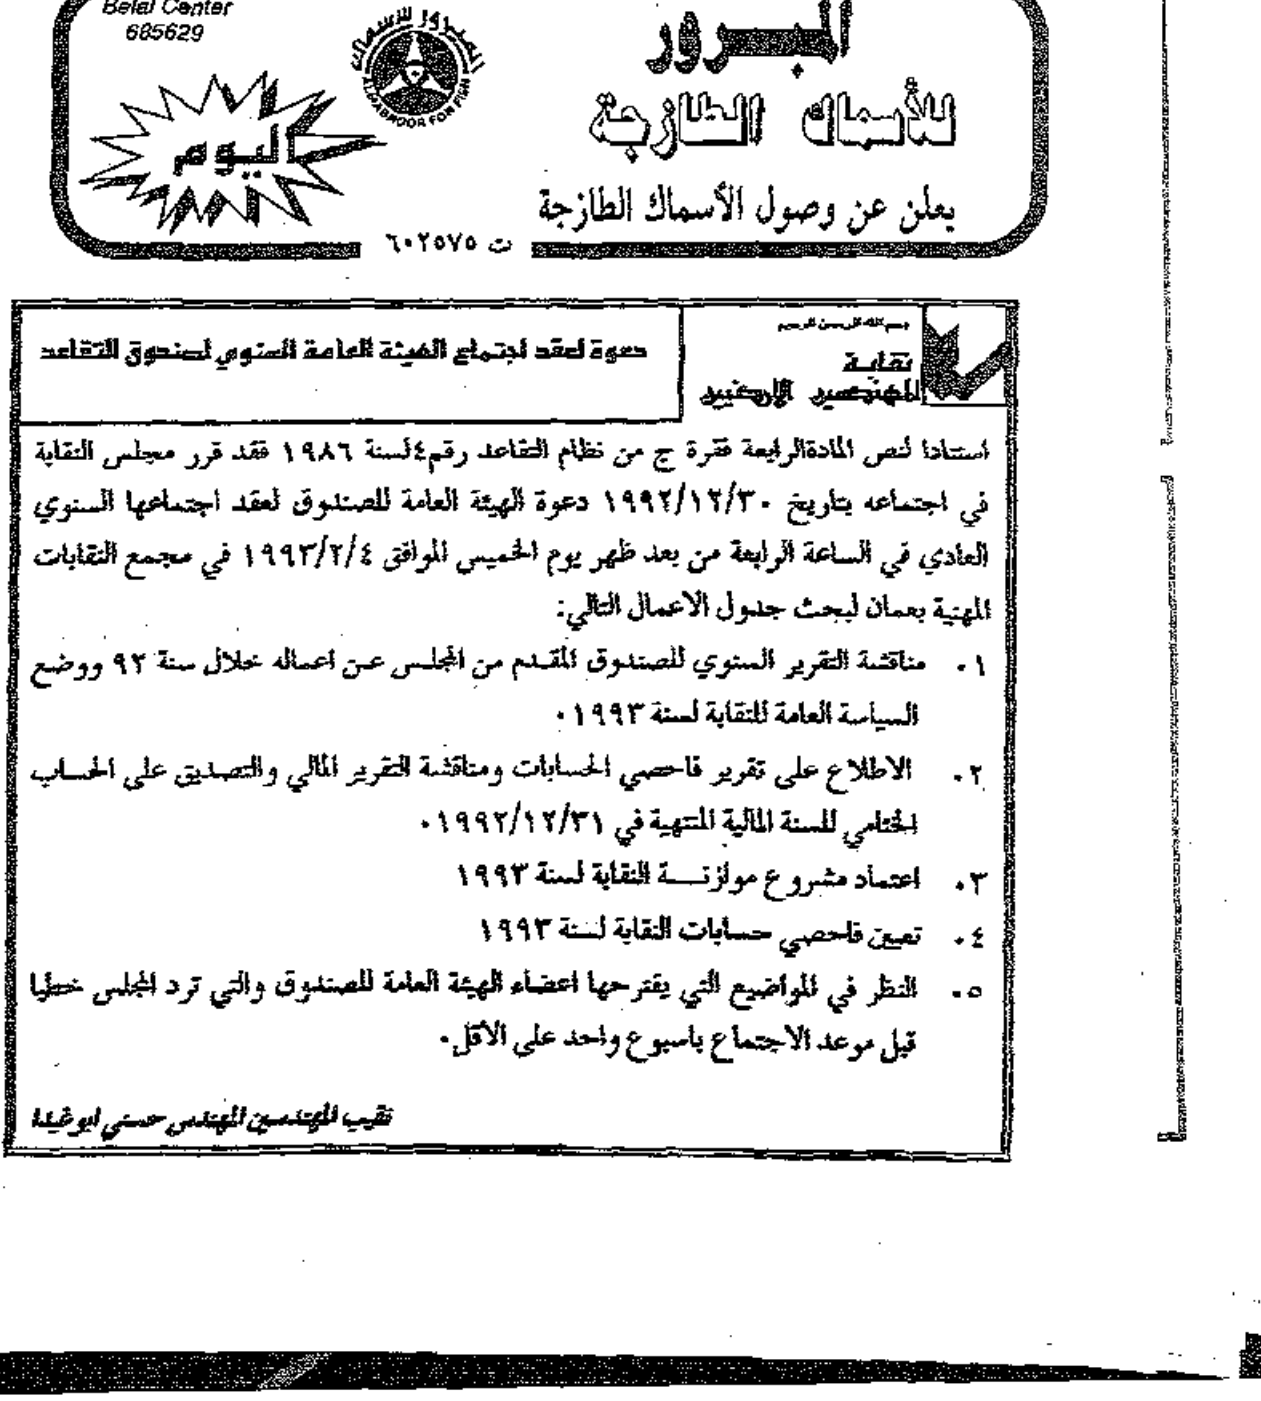 Belal Center
685629
المبرور للأسماك
ALMABROOR FOR FISH
المبرور
للأسماك الطازجة
اليوم
يعلن عن وصول الأسماك الطازجة
ت ٦٠٢٥٧٥
بسم الله الرحمن الرحيم
نقابة
المهندسين الاردنيين
دعوة لعقد اجتماع الهيئة العامة السنوي لصندوق التقاعد
استنادا لنص المادةالرابعة فقرة ج من نظام التقاعد رقم٤لسنة ١٩٨٦ فقد قرر مجلس النقابة
في اجتماعه بتاريخ ١٩٩٢/١٢/٣٠ دعوة الهيئة العامة للصندوق لعقد اجتماعها السنوي
العادي في الساعة الرابعة من بعد ظهر يوم الخميس الموافق ١٩٩٣/٢/٤ في مجمع النقابات
المهنية بعمان لبحث جدول الاعمال التالي:
١. مناقشة التقرير السنوي للصندوق المقدم من المجلس عن اعماله خلال سنة ٩٢ ووضع
السياسة العامة للنقابة لسنة ١٩٩٣.
٢. الاطلاع على تقرير فاحصي الحسابات ومناقشة التقرير المالي والتصديق على الحساب
الختامي للسنة المالية المنتهية في ١٩٩٢/١٢/٣١.
٣. اعتماد مشروع موازنـــة النقابة لسنة ١٩٩٣
٤. تعيين فاحصي حسابات النقابة لسنة ١٩٩٣
٥. النظر في المواضيع التي يقترحها اعضاء الهيئة العامة للصندوق والتي ترد المجلس خطيا
قبل موعد الاجتماع باسبوع واحد على الأقل.
نقيب المهندسين المهندس حسني ابو غيدا